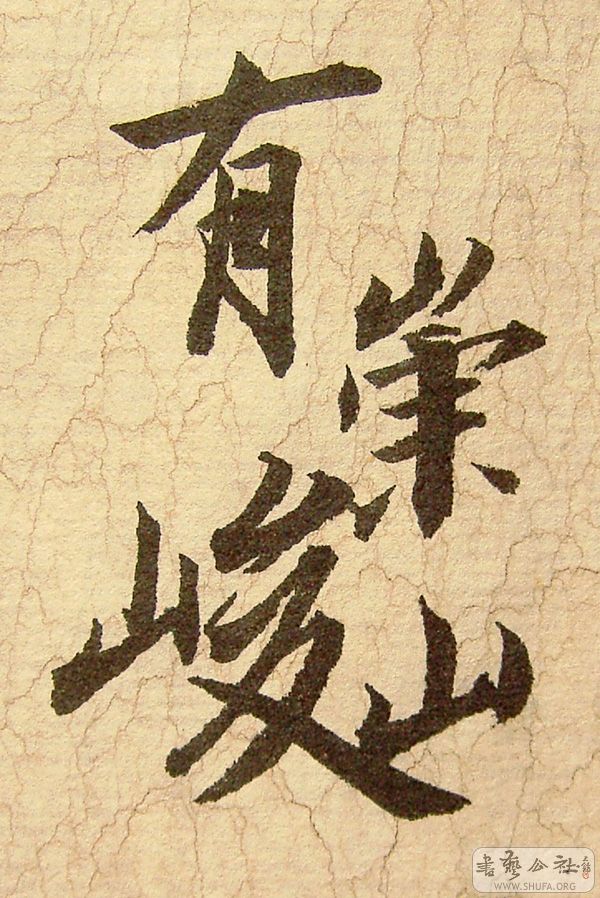 有崇
山峻
書藝公社
WWW.SHUFA.ORG